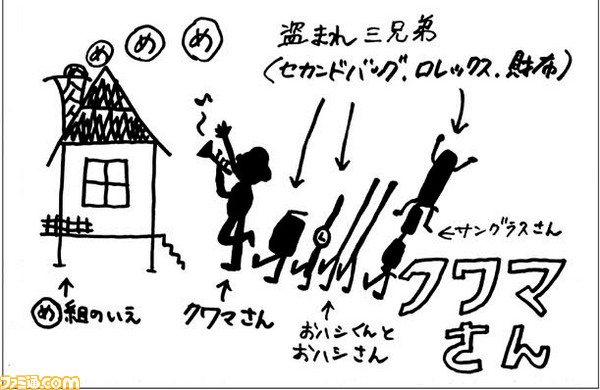 め め め
盗まれ三兄弟
(セカンドバッグ、ロレックス、財布)
←サングラスさん
め組のいえ
クワマさん
おハシくんと
おハシさん
クワマ
さん
ファミ通.com